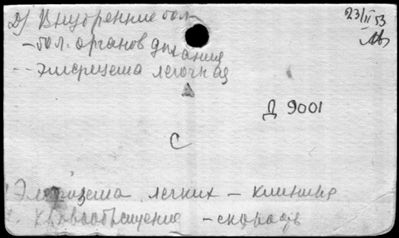 2) Внутренние бол-
23/II 53
- бол. органов дыхания
-- эмфизема легочная
Д 9001
С
Эмфизема легких - клиника
Кровообращение - скорость